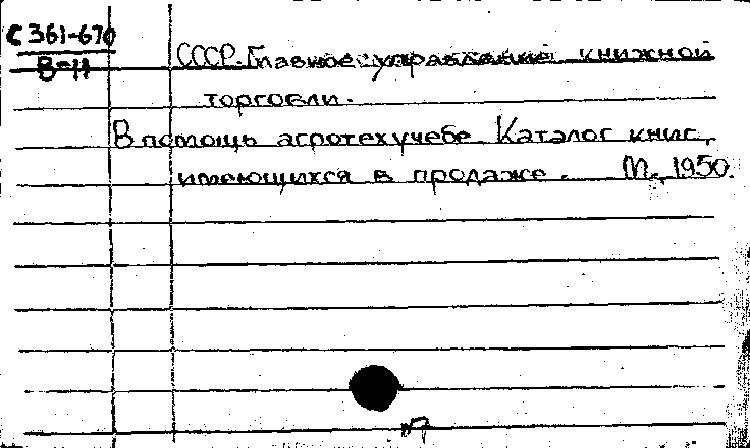 С 361-670
В-11
СССР. Главное управление книжной
торговли.
В помощь агротехучебе. Каталог книг,
имеющихся в продаже. М., 1950.